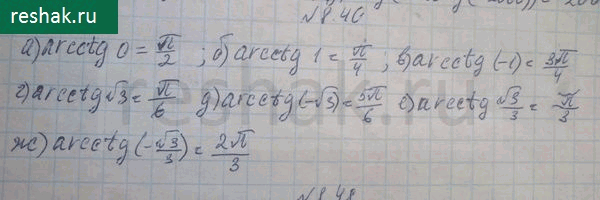 reshak.ru
№8.46
а) arcctg 0 = π/2 ; б) arcctg 1 = π/4 ; в) arcctg (-1) = 3π/4
г) arcctg √3 = π/6 д) arcctg (-√3) = 5π/6 е) arcctg √3/3 = π/3
ж) arcctg (-√3/3) = 2π/3
№8.48